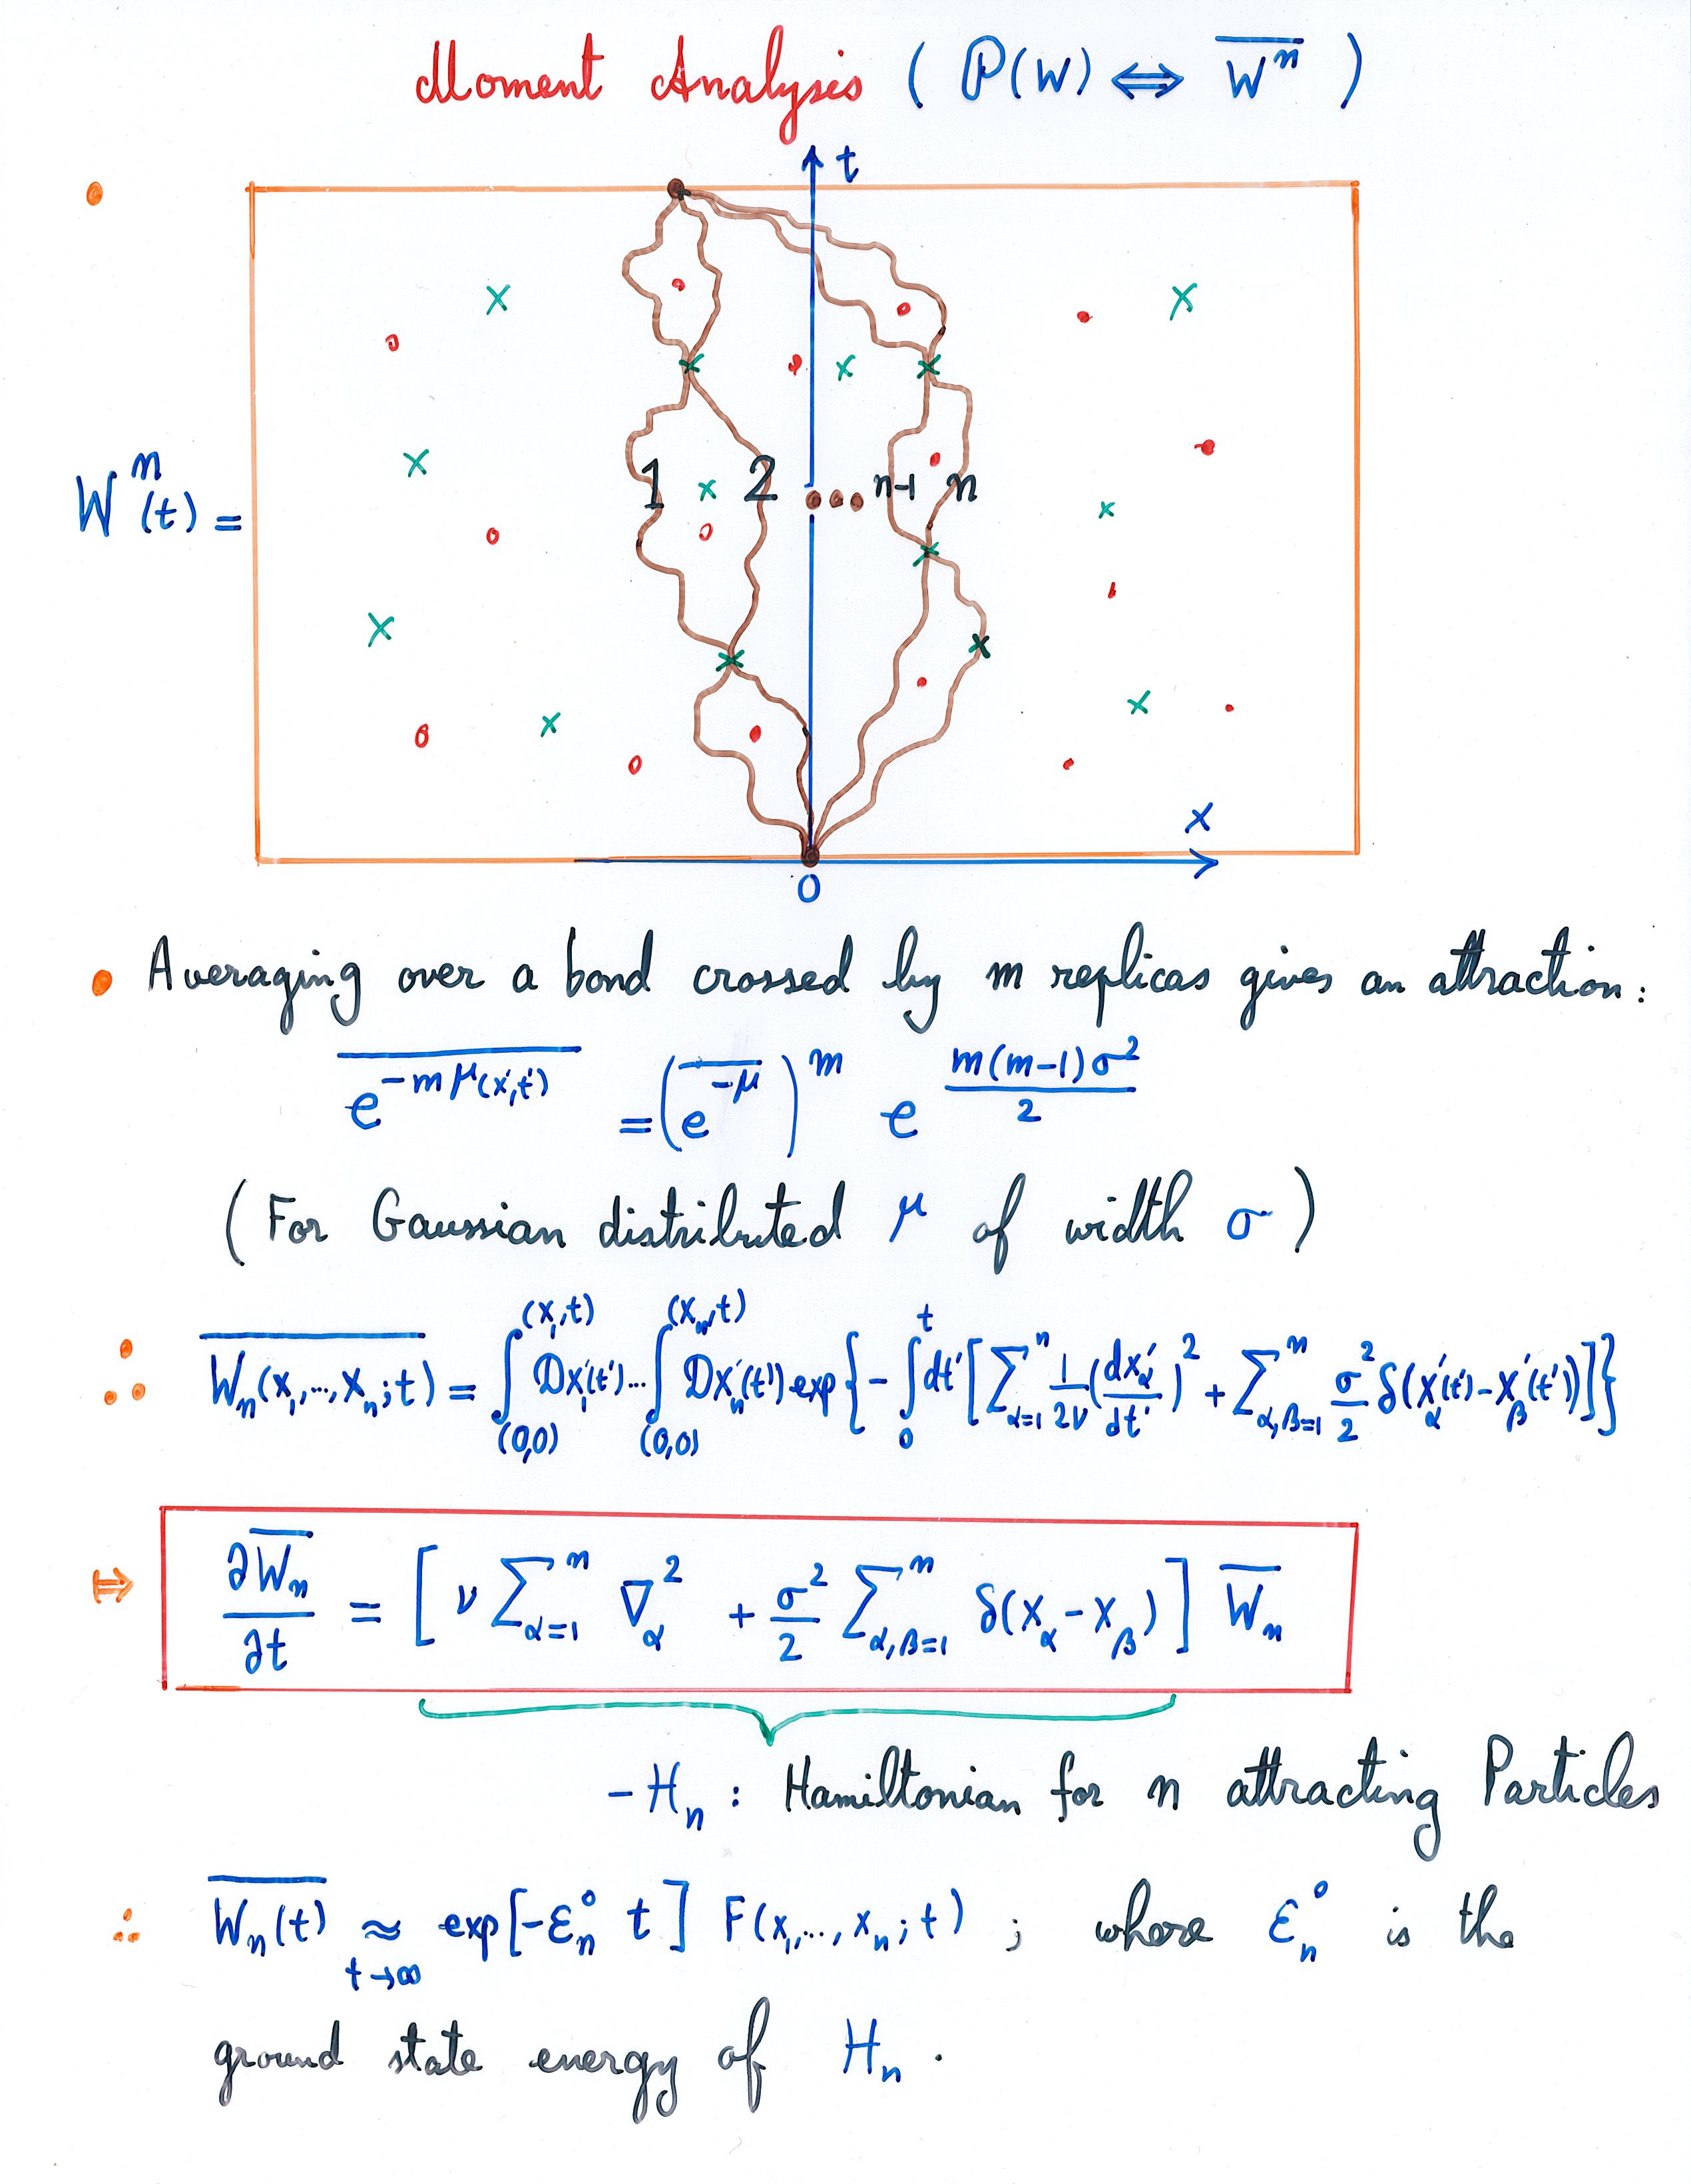 Moment Analysis ( P(W) ⇔ \overline{W^n} )
t
1 2 ... n-1 n
W^n(t) =
x
0
• Averaging over a bond crossed by m replicas gives an attraction:
\overline{e^{-mμ(x',t')}} = (\overline{e^{-μ}})^m e^{\frac{m(m-1)σ^2}{2}}
(For Gaussian distributed μ of width σ)
∴ \overline{W_n(x_1,...,x_n;t)} = ∫_{(0,0)}^{(x_1,t)} Dx_1'(t')...∫_{(0,0)}^{(x_n,t)} Dx_n'(t') exp{-∫_0^t dt'[∑_{α=1}^n \frac{1}{2ν}(\frac{dx_α'}{dt'})^2 + ∑_{α,β=1}^n \frac{σ^2}{2} δ(x_α'(t')-x_β'(t'))]}
⇒ \frac{∂\overline{W_n}}{∂t} = [ν ∑_{α=1}^n ∇_α^2 + \frac{σ^2}{2} ∑_{α,β=1}^n δ(x_α - x_β)] \overline{W_n}
-H_n : Hamiltonian for n attracting Particles
∴ \overline{W_n(t)} ≈_{t→∞} exp[-ε_n^0 t] F(x_1,..,x_n;t) ; where ε_n^0 is the
ground state energy of H_n.